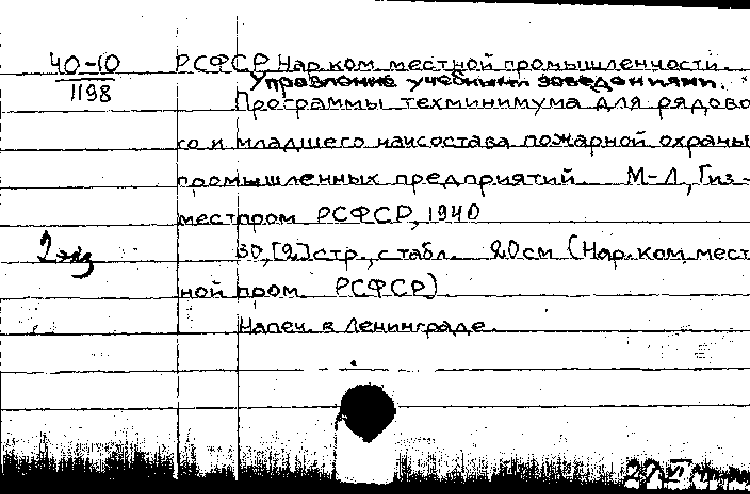 40-10
1198
РСФСР Нар. ком. местной промышленности.
Управление учебными заведениями.
Программы техминимума для рядово
го и младшего начсостава пожарной охраны
промышленных предприятий. М-Л, Гиз-
местпром РСФСР, 1940
2 экз
30, [2] стр., с табл. 20 см (Нар. ком. мест
ной пром. РСФСР).
Напеч. в Ленинграде.